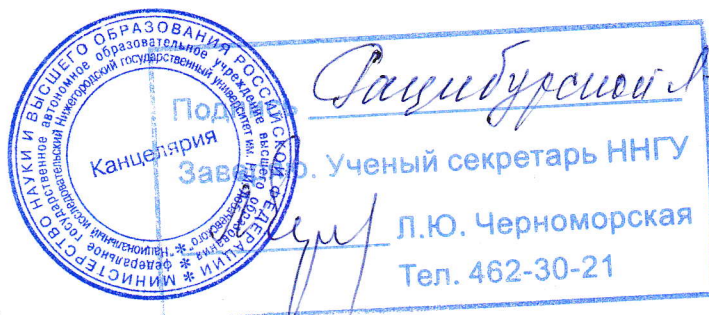 МИНИСТЕРСТВО НАУКИ И ВЫСШЕГО ОБРАЗОВАНИЯ РОССИЙСКОЙ ФЕДЕРАЦИИ *
* федеральное государственное автономное образовательное учреждение высшего образования *
"Национальный исследовательский Нижегородский государственный университет им.
Канцелярия
Подпись Рацибурской Л
Заверяю. Ученый секретарь ННГУ
Л.Ю. Черноморская
Тел. 462-30-21